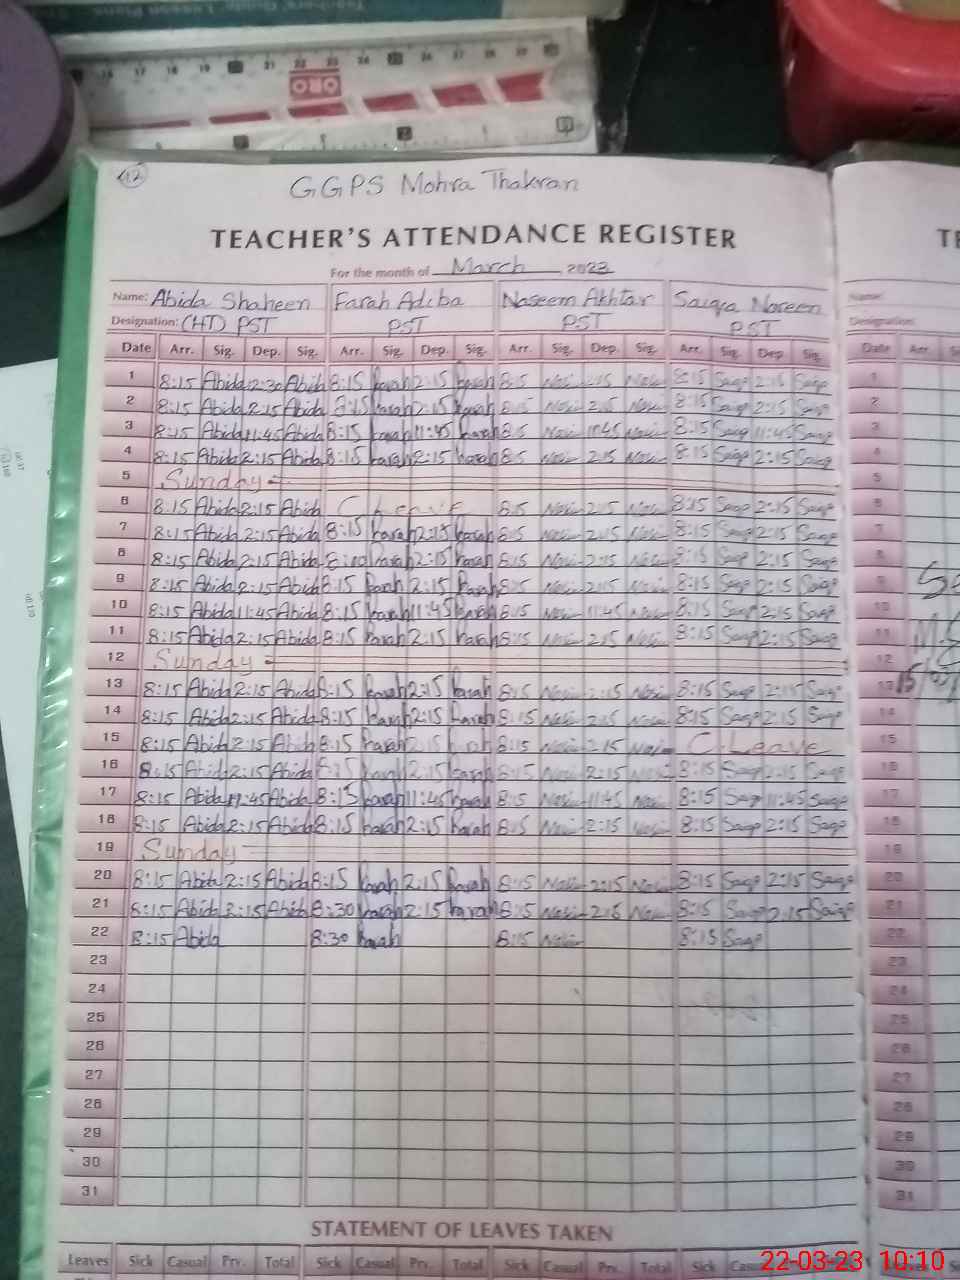 Teachers' Guide, Lesson Plans
17 18 19 21 22 23 24 27 28 29
ORO
42
GGPS Mohra Thakran
TEACHER'S ATTENDANCE REGISTER
For the month of March, 2023
Name: Abida Shaheen Farah Adiba Naseem Akhtar Saiqa Noreen
Designation: (HT) PST PST PST PST
Date Arr. Sig. Dep. Sig. Arr. Sig. Dep. Sig. Arr. Sig. Dep. Sig. Arr. Sig. Dep. Sig.
1 8:15 Abida 2:30 Abida 8:15 Farah 2:15 Farah 8:15 2:15 8:15 Saiqa 2:15 Saiqa
2 8:15 Abida 2:15 Abida 8:15 Farah 2:15 Farah 8:15 2:15 8:15 Saiqa 2:15 Saiqa
3 8:15 Abida 11:45 Abida 8:15 Farah 11:45 Farah 8:15 11:45 8:15 Saiqa 11:45 Saiqa
4 8:15 Abida 2:15 Abida 8:15 Farah 2:15 Farah 8:15 2:15 8:15 Saiqa 2:15 Saiqa
5 Sunday
6 8:15 Abida 2:15 Abida C. Leave 8:15 2:15 8:15 Saiqa 2:15 Saiqa
7 8:15 Abida 2:15 Abida 8:15 Farah 2:15 Farah 8:15 2:15 8:15 Saiqa 2:15 Saiqa
8 8:15 Abida 2:15 Abida 8:10 Farah 2:15 Farah 8:15 2:15 8:15 Saiqa 2:15 Saiqa
9 8:15 Abida 2:15 Abida 8:15 Farah 2:15 Farah 8:15 2:15 8:15 Saiqa 2:15 Saiqa
10 8:15 Abida 11:45 Abida 8:15 Farah 11:45 Farah 8:15 11:45 8:15 Saiqa 2:15 Saiqa
11 8:15 Abida 2:15 Abida 8:15 Farah 2:15 Farah 8:15 2:15 8:15 Saiqa 2:15 Saiqa
12 Sunday
13 8:15 Abida 2:15 Abida 8:15 Farah 2:15 Farah 8:15 2:15 8:15 Saiqa 2:15 Saiqa
14 8:15 Abida 2:15 Abida 8:15 Farah 2:15 Farah 8:15 2:15 8:15 Saiqa 2:15 Saiqa
15 8:15 Abida 2:15 Abida 8:15 Farah 2:15 Farah 8:15 2:15 C. Leave
16 8:15 Abida 2:15 Abida 8:15 Farah 2:15 Farah 8:15 2:15 8:15 Saiqa 2:15 Saiqa
17 8:15 Abida 11:45 Abida 8:15 Farah 11:45 Farah 8:15 11:45 8:15 Saiqa 11:45 Saiqa
18 8:15 Abida 2:15 Abida 8:15 Farah 2:15 Farah 8:15 2:15 8:15 Saiqa 2:15 Saiqa
19 Sunday
20 8:15 Abida 2:15 Abida 8:15 Farah 2:15 Farah 8:15 2:15 8:15 Saiqa 2:15 Saiqa
21 8:15 Abida 2:15 Abida 8:30 Farah 2:15 Farah 8:15 2:15 8:15 Saiqa 2:15 Saiqa
22 8:15 Abida 8:30 Farah 8:15 8:15 Saiqa
23
24
25
26
27
28
29
30
31
STATEMENT OF LEAVES TAKEN
Leaves Sick Casual Prv. Total Sick Casual Prv. Total Sick Casual Prv. Total Sick
22-03-23 10:10